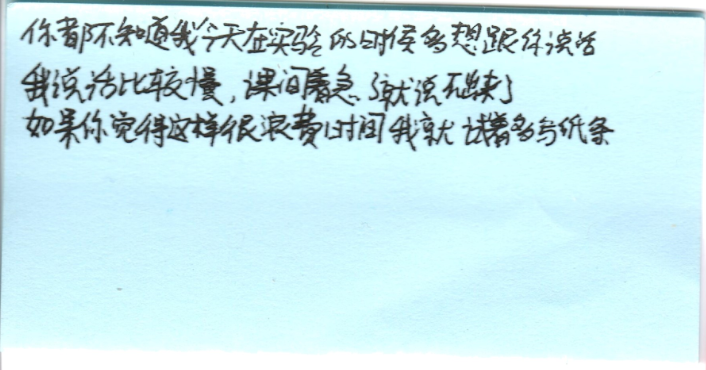 你都不知道我今天在实验的时候多想跟你说话
我说话比较慢，课间着急了就说不出来了
如果你觉得这样很浪费时间我就试着多写纸条